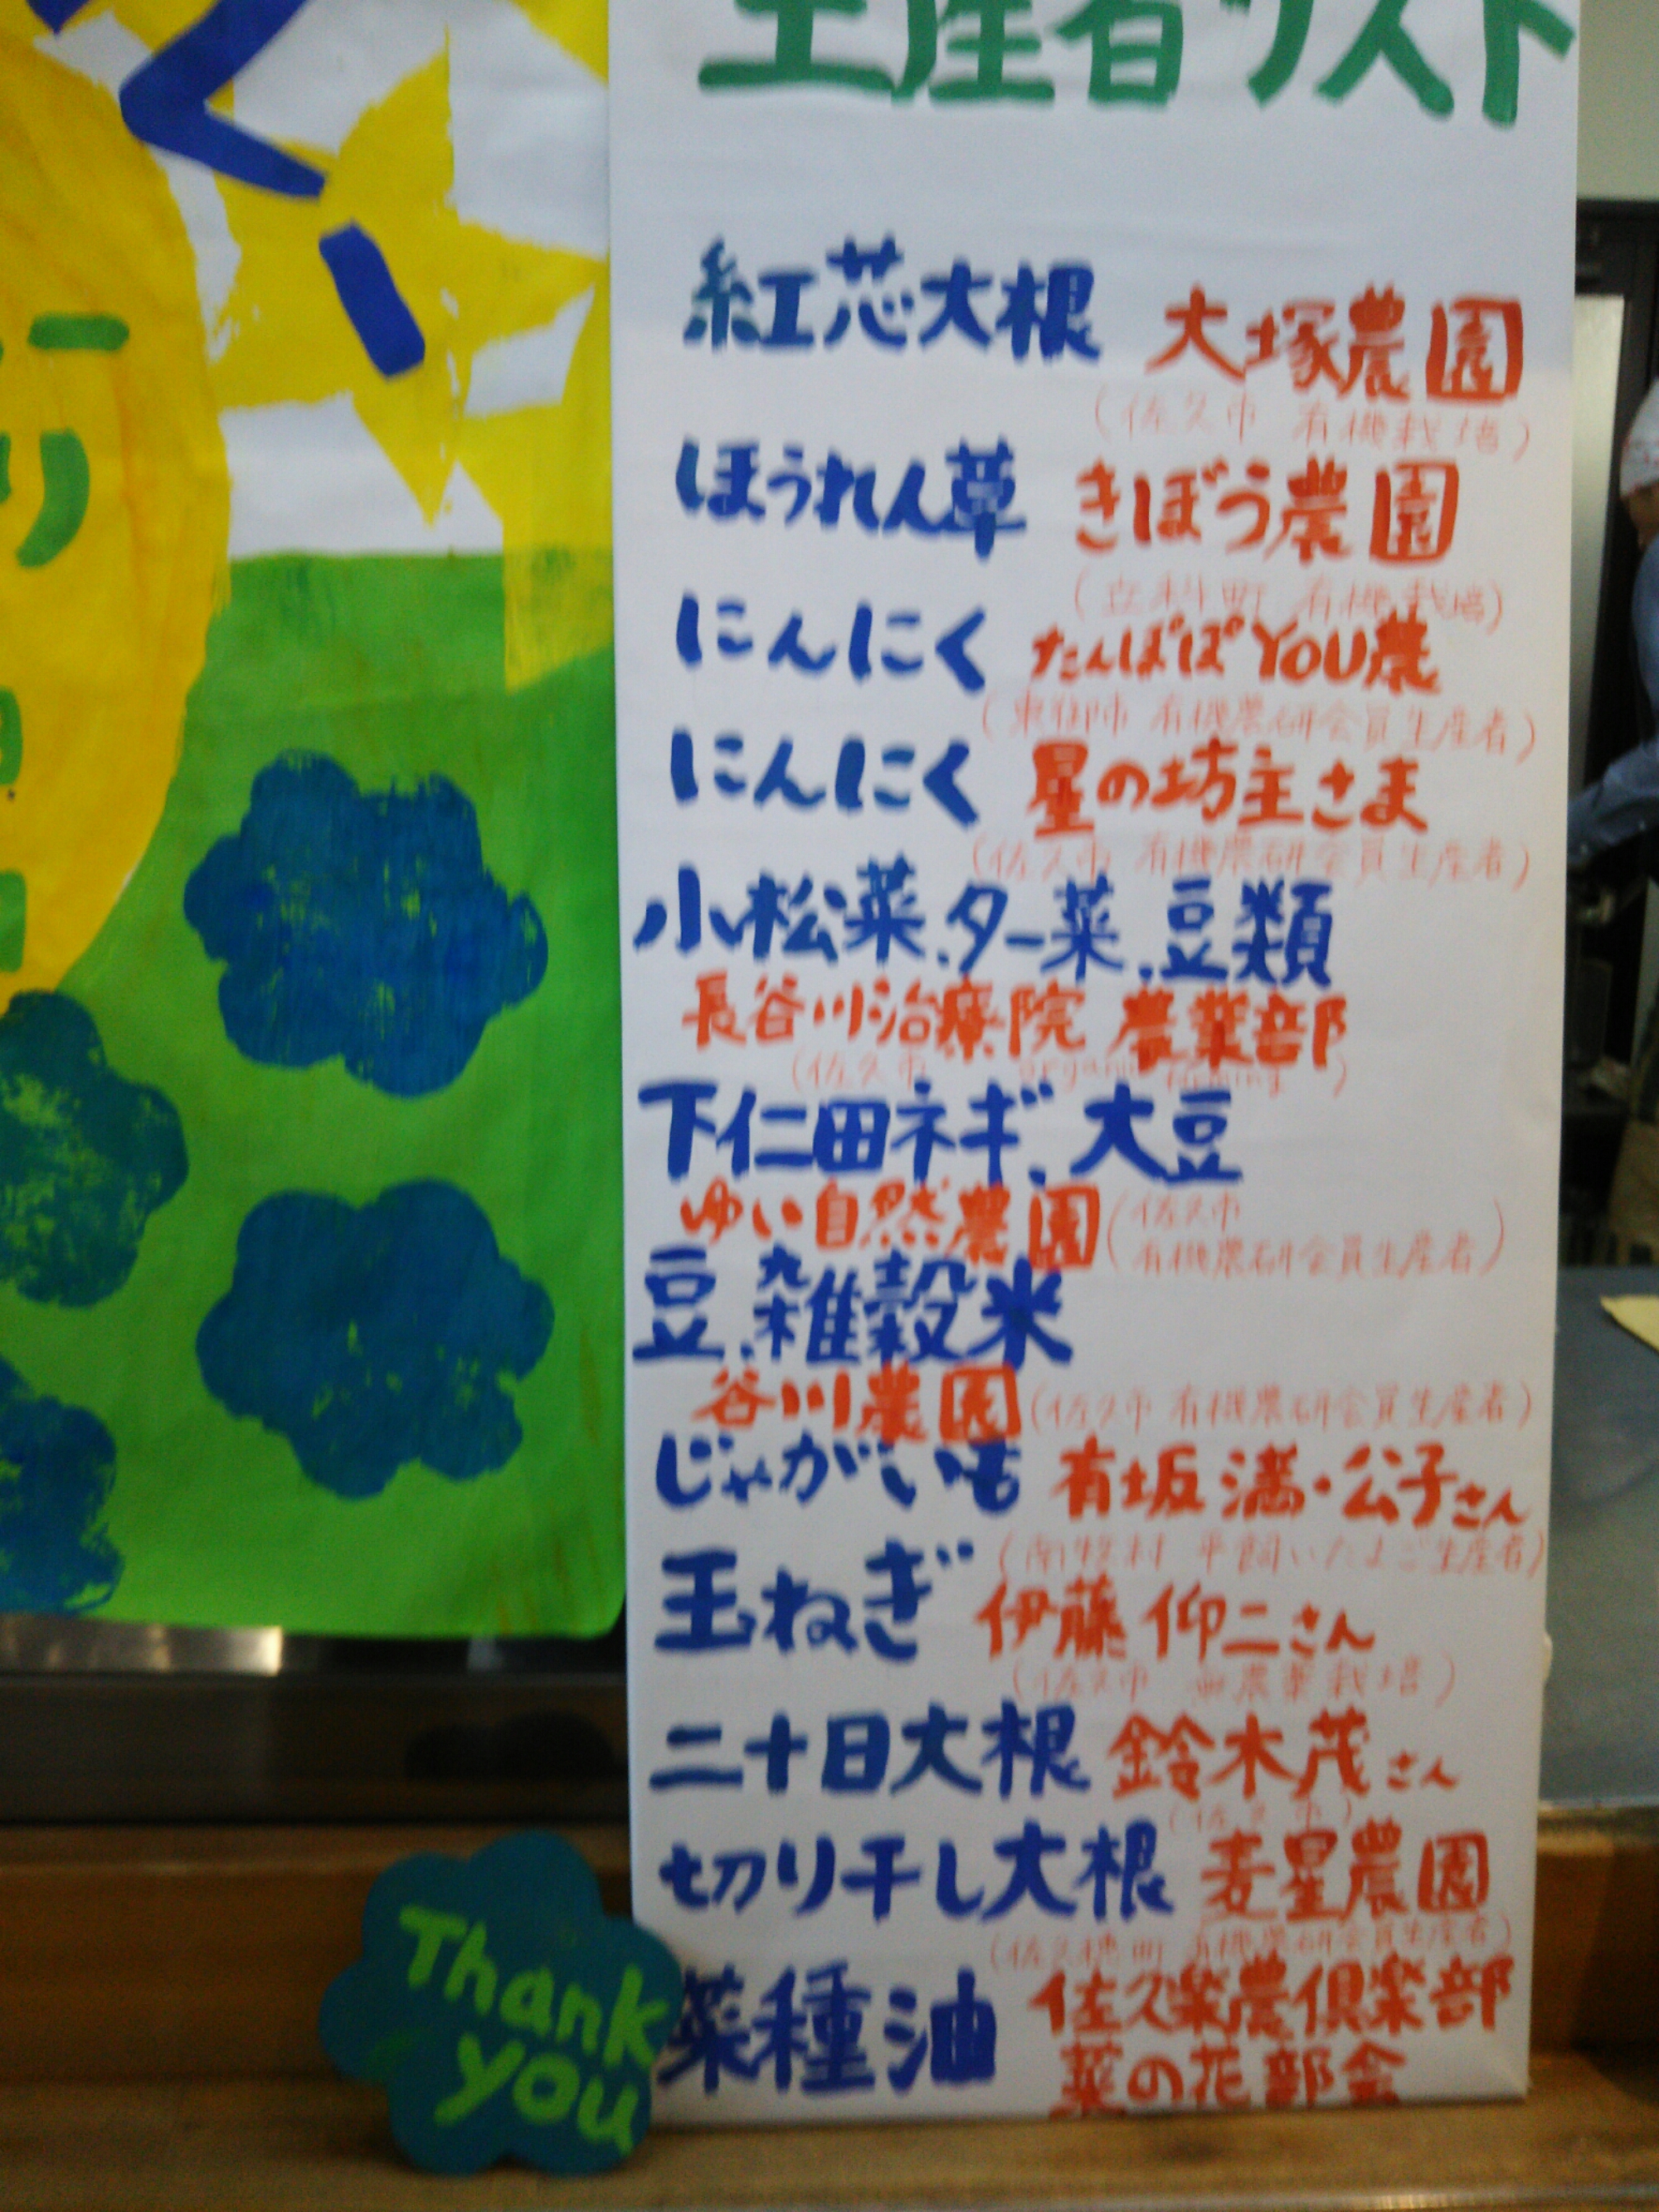 生産者リスト
紅芯大根 大塚農園
(佐久市 有機栽培)
ほうれん草 きぼう農園
(立科町 有機栽培)
にんにく たんぽぽYOU農
(東御市 有機農研会員生産者)
にんにく 星の坊主さま
(佐久市 有機農研会員生産者)
小松菜、ター菜、豆類
長谷川治療院 農業部
(佐久市 organic farming)
下仁田ネギ、大豆
ゆい自然農園(佐久市
有機農研会員生産者)
豆、雑穀米
谷川農園(佐久市 有機農研会員生産者)
じゃがいも 有坂 満・公子さん
(南牧村 平飼いたまご生産者)
玉ねぎ 伊藤 仰二さん
(佐久市 無農薬栽培)
二十日大根 鈴木茂さん
(佐久市)
切り干し大根 麦星農園
(佐久穂町 有機農研会員生産者)
菜種油 佐久楽農倶楽部
菜の花部会
Thank
you
り